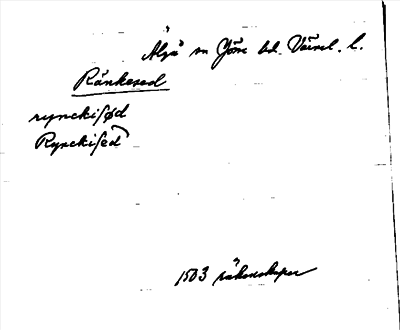 Älgå sn Jöse hd. Värml. l.
Ränkesed
rynckisød
Rynckised
1503 räkenskaper